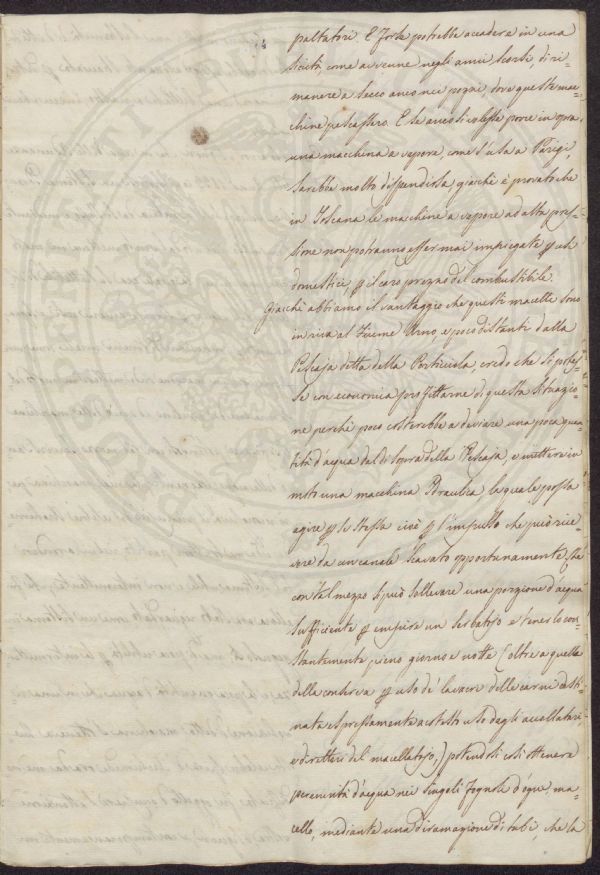 paltatori. E forse potrebbe accadere in una
siccità, come avvenne negli annni scorsi, di ri-
manere a secco anco nei pozzi, dove queste mac-
chine pescassero. E se anco si volesse porre in opra
una macchina a vapore, come s'usa a Parigi,
sarebbe molto dispendiosa, giacchè è provato che
in Toscana le macchine a vapore ad alta pres-
sione non potranno esser mai impiegate p usi
domestici, p il caro prezzo del combustibile.
Giacchè abbiamo il vantaggio che questi macelli sono
in riva al Fiume Arno e poco distanti dalla
Pescaja detta della Porticciola, credo che si potes-
se con economia profittarne di questa situazio-
ne perchè poco costerebbe a deviare una poca quan-
tità d'acqua dal di sopra della Pescaja, e mettere in
moto una macchina Idraulica, la quale possa
agire p se stessa cioè p l'impulso che può rice-
vere da un canale scavato opportunamente che
con tal mezzo si può sollevare una porzione d'acqua
sufficiente p empire un serbatojo e tenerlo con-
stantemente pieno giorno e notte (oltre a quella
della conserva p uso de' lavori delle carni desti-
nata espressamente a detto uso dagli accollatari
e direttori del macellatojo,) potendosi così ottenere
perennità d'acqua nei singoli fognoli d'ogni ma-
cello, mediante una diramazione di tubi, che la